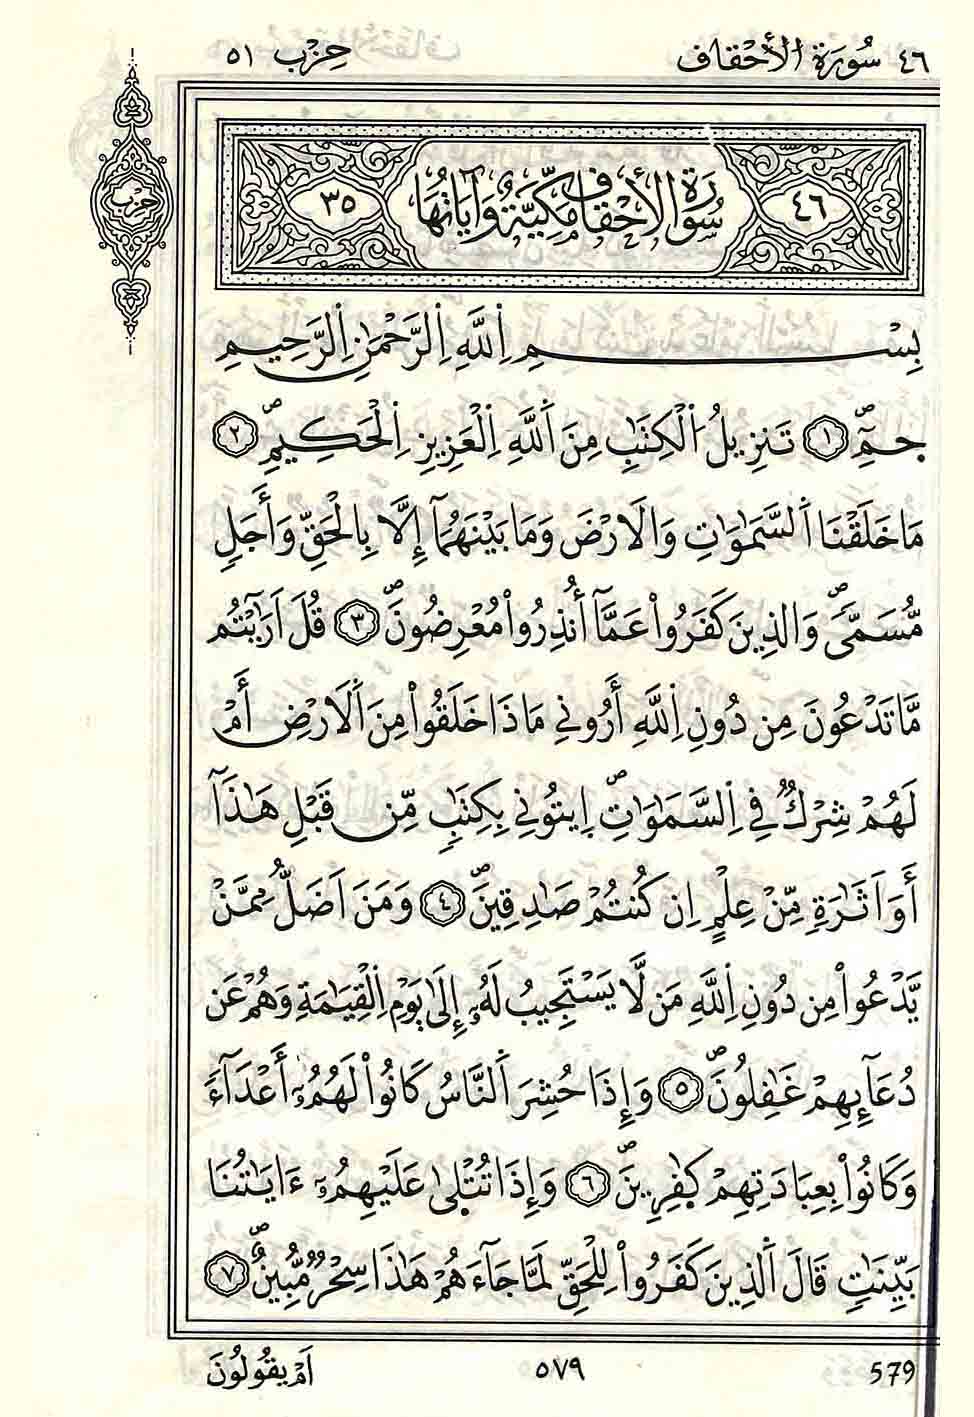 ٤٦ سُورَةُ الأَحْقَاف حِزْب ٥١
حِزْب
٤٦ سُورَةُ الأَحْقَافِ مَكِّيَّةٌ وَآيَاتُهَا ٣٥
بِسْمِ اِللَّهِ اِلرَّحْمَٰنِ اِلرَّحِيمِ
حمِٓۖ ١ تَنزِيلُ اُلْكِتَٰبِ مِنَ اَللَّهِ اِلْعَزِيزِ اِلْحَكِيمِۖ ٢
مَا خَلَقْنَا اَلسَّمَٰوَٰتِ وَالَارْضَ وَمَا بَيْنَهُمَآ إِلَّا بِالْحَقِّ وَأَجَلٍ
مُّسَمّىٗۖ وَالذِينَ كَفَرُواْ عَمَّآ أُنذِرُواْ مُعْرِضُونَۖ ٣ قُلَ اَرَٰٓيْتُم
مَّا تَدْعُونَ مِن دُونِ اِللَّهِ أَرُونِي مَاذَا خَلَقُواْ مِنَ اَلَارْضِ أَمْ
لَهُمْ شِرْكٞ فِي اِلسَّمَٰوَٰتِۖ اِيتُونِي بِكِتَٰبٖ مِّن قَبْلِ هَٰذَآ
أَوَ اَثَٰرَةٖ مِّنْ عِلْمٍ اِن كُنتُمْ صَٰدِقِينَۖ ٤ وَمَنَ اَضَلُّ مِمَّنْ
يَّدْعُواْ مِن دُونِ اِللَّهِ مَن لَّا يَسْتَجِيبُ لَهُۥٓ إِلَىٰ يَوْمِ اِلْقِيَٰمَةِ وَهُمْ عَن
دُعَآئِهِمْ غَٰفِلُونَۖ ٥ وَإِذَا حُشِرَ اَلنَّاسُ كَانُواْ لَهُمُۥٓ أَعْدَآءٗ
وَكَانُواْ بِعِبَادَتِهِمْ كٰ۪فِرِينَۖ ٦ وَإِذَا تُتْل۪ىٰ عَلَيْهِمُۥٓ ءَايَٰتُنَا
بَيِّنَٰتٖ قَالَ اَلذِينَ كَفَرُواْ لِلْحَقِّ لَمَّا جَآءَهُمْ هَٰذَا سِحْرٞ مُّبِينٌۖ ٧
579 ٥٧٩ اَمْ يَقُولُونَ